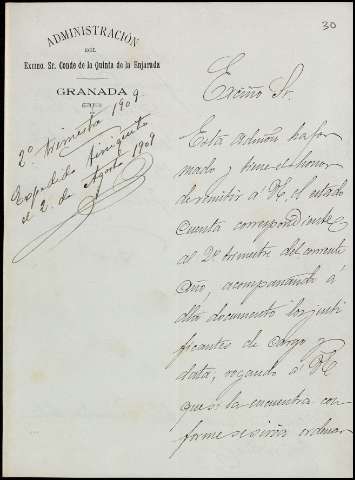 30
ADMINISTRACIÓN
DEL
Excmo. Sr. Conde de la Quinta de la Enjarada
GRANADA
2º trimestre 1909
Expedido finiquito
el 2. de Agosto 1909
Excmo Sr.
Esta Admon ha for
mado y tiene el honor
de remitir á VE el estado
Cuenta correspondiente
al 2º trimestre del corriente
Año, acompañando á
dho documento los justi
ficantes de cargo y
data, rogando á VE
que si la encuentra con
forme se sirva ordenar